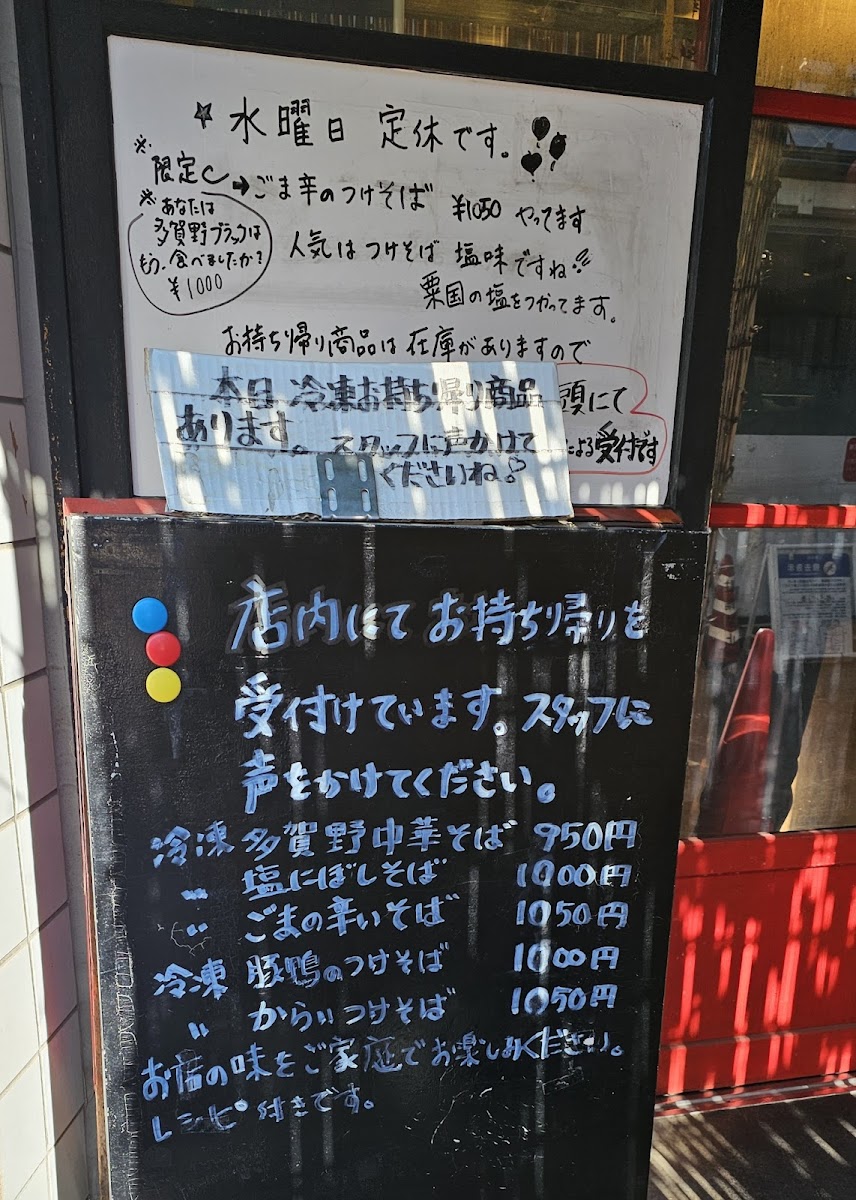 ★水曜日 定休です。
※限定
➡ごま辛のつけそば ¥1050 やってます
※あなたは
多賀野ブラックは
もう食べましたか?
¥1000
人気はつけそば 塩味ですね!!
粟国の塩をつかってます。
お持ち帰り商品は在庫がありますので
頭にて
による受付です
本日 冷凍お持ち帰り商品
あります。スタッフに声かけて
くださいね♪
店内にてお持ち帰りを
受付けています。スタッフに
声をかけてください。
冷凍 多賀野中華そば 950円
〃 塩にぼしそば 1000円
〃 ごまの辛いそば 1050円
冷凍 豚鴨のつけそば 1000円
〃 からいつけそば 1050円
お店の味をご家庭でお楽しみください。
レシピ付きです。